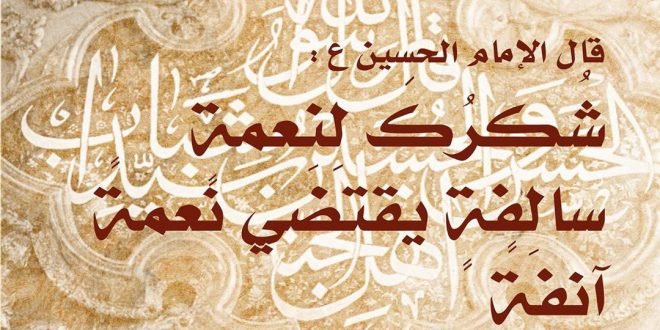 قال الإمام الحسين ع :
شُكرُكَ لنعمة
سالفةٍ يقتَضَي نعمةً
آنفةً